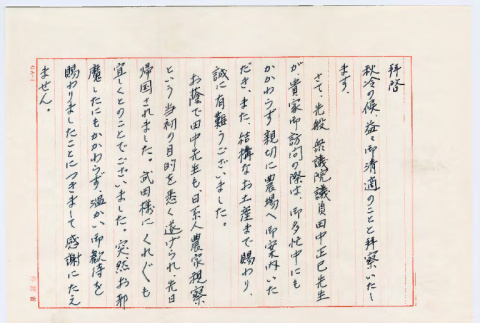 拝啓
秋冷の候、益々御清適のことと拝察いたし
ます。
さて、先般衆議院議員田中正巳先生
が、貴家御訪問の際は、御多忙中にも
かかわらず親切に農場へ御案内いた
だき、また、結構なお土産まで賜わり、
誠に有難うございました。
お蔭で田中先生も、日系人農家視察
という当初の目的を悉く遂げられ、先日
帰国されました。武田様にくれぐれも
宜しくとのことでございました。突然お邪
魔したにもかかわらず、温かい御歓待を
賜わりましたことにつきまして感謝にたえ
ません。